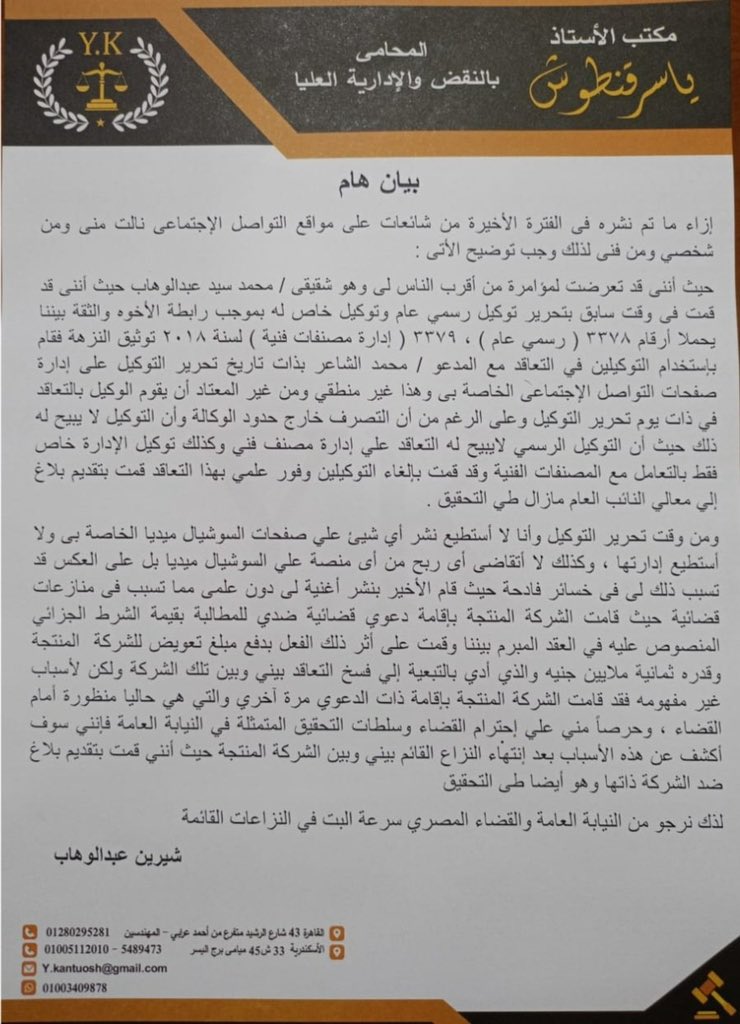 Y.K
مكتب الأستاذ
ياسر قنطوش
المحامى
بالنقض والإدارية العليا
بيان هام
إزاء ما تم نشره فى الفترة الأخيرة من شائعات على مواقع التواصل الإجتماعى نالت منى ومن
شخصي ومن فنى لذلك وجب توضيح الأتى :
حيث أننى قد تعرضت لمؤامرة من أقرب الناس لى وهو شقيقى / محمد سيد عبدالوهاب حيث أننى قد
قمت فى وقت سابق بتحرير توكيل رسمي عام وتوكيل خاص له بموجب رابطة الأخوه والثقة بيننا
يحملا أرقام ٣٣٧٨ ( رسمي عام ) ، ٣٣٧٩ ( إدارة مصنفات فنية ) لسنة ٢٠١٨ توثيق النزهة فقام
بإستخدام التوكيلين في التعاقد مع المدعو / محمد الشاعر بذات تاريخ تحرير التوكيل على إدارة
صفحات التواصل الإجتماعى الخاصة بى وهذا غير منطقي ومن غير المعتاد أن يقوم الوكيل بالتعاقد
في ذات يوم تحرير التوكيل وعلى الرغم من أن التصرف خارج حدود الوكالة وأن التوكيل لا يبيح له
ذلك حيث أن التوكيل الرسمي لايبيح له التعاقد علي إدارة مصنف فني وكذلك توكيل الإدارة خاص
فقط بالتعامل مع المصنفات الفنية وقد قمت بإلغاء التوكيلين وفور علمي بهذا التعاقد قمت بتقديم بلاغ
إلي معالي النائب العام مازال طي التحقيق .
ومن وقت تحرير التوكيل وأنا لا أستطيع نشر أي شيئ علي صفحات السوشيال ميديا الخاصة بى ولا
أستطيع إدارتها ، وكذلك لا أتقاضى أى ربح من أى منصة علي السوشيال ميديا بل على العكس قد
تسبب ذلك لى فى خسائر فادحة حيث قام الأخير بنشر أغنية لى دون علمى مما تسبب فى منازعات
قضائية حيث قامت الشركة المنتجة بإقامة دعوي قضائية ضدي للمطالبة بقيمة الشرط الجزائي
المنصوص عليه في العقد المبرم بيننا وقمت على أثر ذلك الفعل بدفع مبلغ تعويض للشركة المنتجة
وقدره ثمانية ملايين جنيه والذي أدي بالتبعية إلي فسخ التعاقد بيني وبين تلك الشركة ولكن لأسباب
غير مفهومه فقد قامت الشركة المنتجة بإقامة ذات الدعوي مرة آخري والتي هي حاليا منظورة أمام
القضاء ، وحرصاً مني علي إحترام القضاء وسلطات التحقيق المتمثلة في النيابة العامة فإنني سوف
أكشف عن هذه الأسباب بعد إنتهاء النزاع القائم بيني وبين الشركة المنتجة حيث أنني قمت بتقديم بلاغ
ضد الشركة ذاتها وهو أيضا طى التحقيق
لذك نرجو من النيابة العامة والقضاء المصري سرعة البت في النزاعات القائمة
شيرين عبدالوهاب
القاهرة 43 شارع الرشيد متفرع من أحمد عرابي – المهندسين 01280295281
الأسكندرية 33 ش45 ميامى برج اليسر 5489473 - 01005112010
Y.kantuosh@gmail.com
01003409878